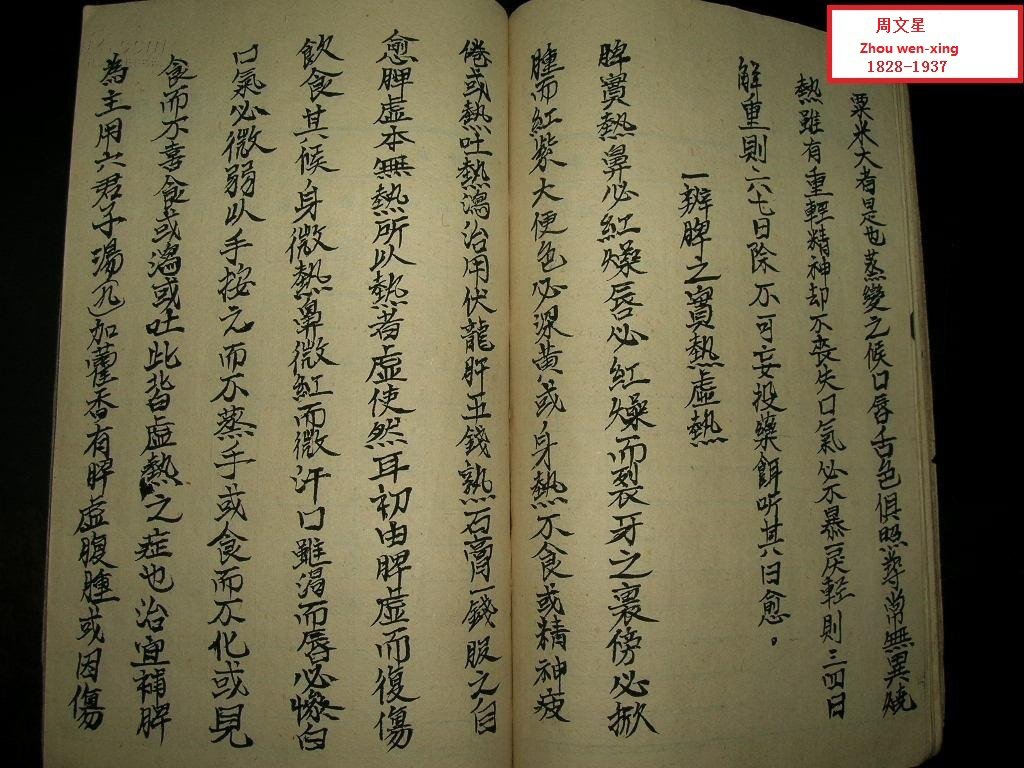 周文星
Zhou wen-xing
1828-1937
粟米大者是也蒸變之候口唇舌色俱照尋常無異燒
熱雖有重輕精神却不喪失口氣必不暴戾輕則三四日
解重則六七日除不可妄投藥餌听其自愈。
一辨脾之實熱虛熱
脾實熱鼻必紅燥唇必紅燥而裂牙之裏傍必掀
腫而紅紫大便色必深黃或身熱不食或精神疲
倦或熱吐熱瀉治用伏龍肝五錢熟石膏一錢服之自
愈脾虛本無熱所以熱者虛使然耳初由脾虛而復傷
飲食其候身微熱鼻微紅而微汗口雖渴而唇必慘白
口氣必微弱以手按之而不蒸手或食而不化或見
食而不喜食或瀉或吐此皆虛熱之症也治宜補脾
為主用六君子湯九加藿香有脾虛腹腫或因傷